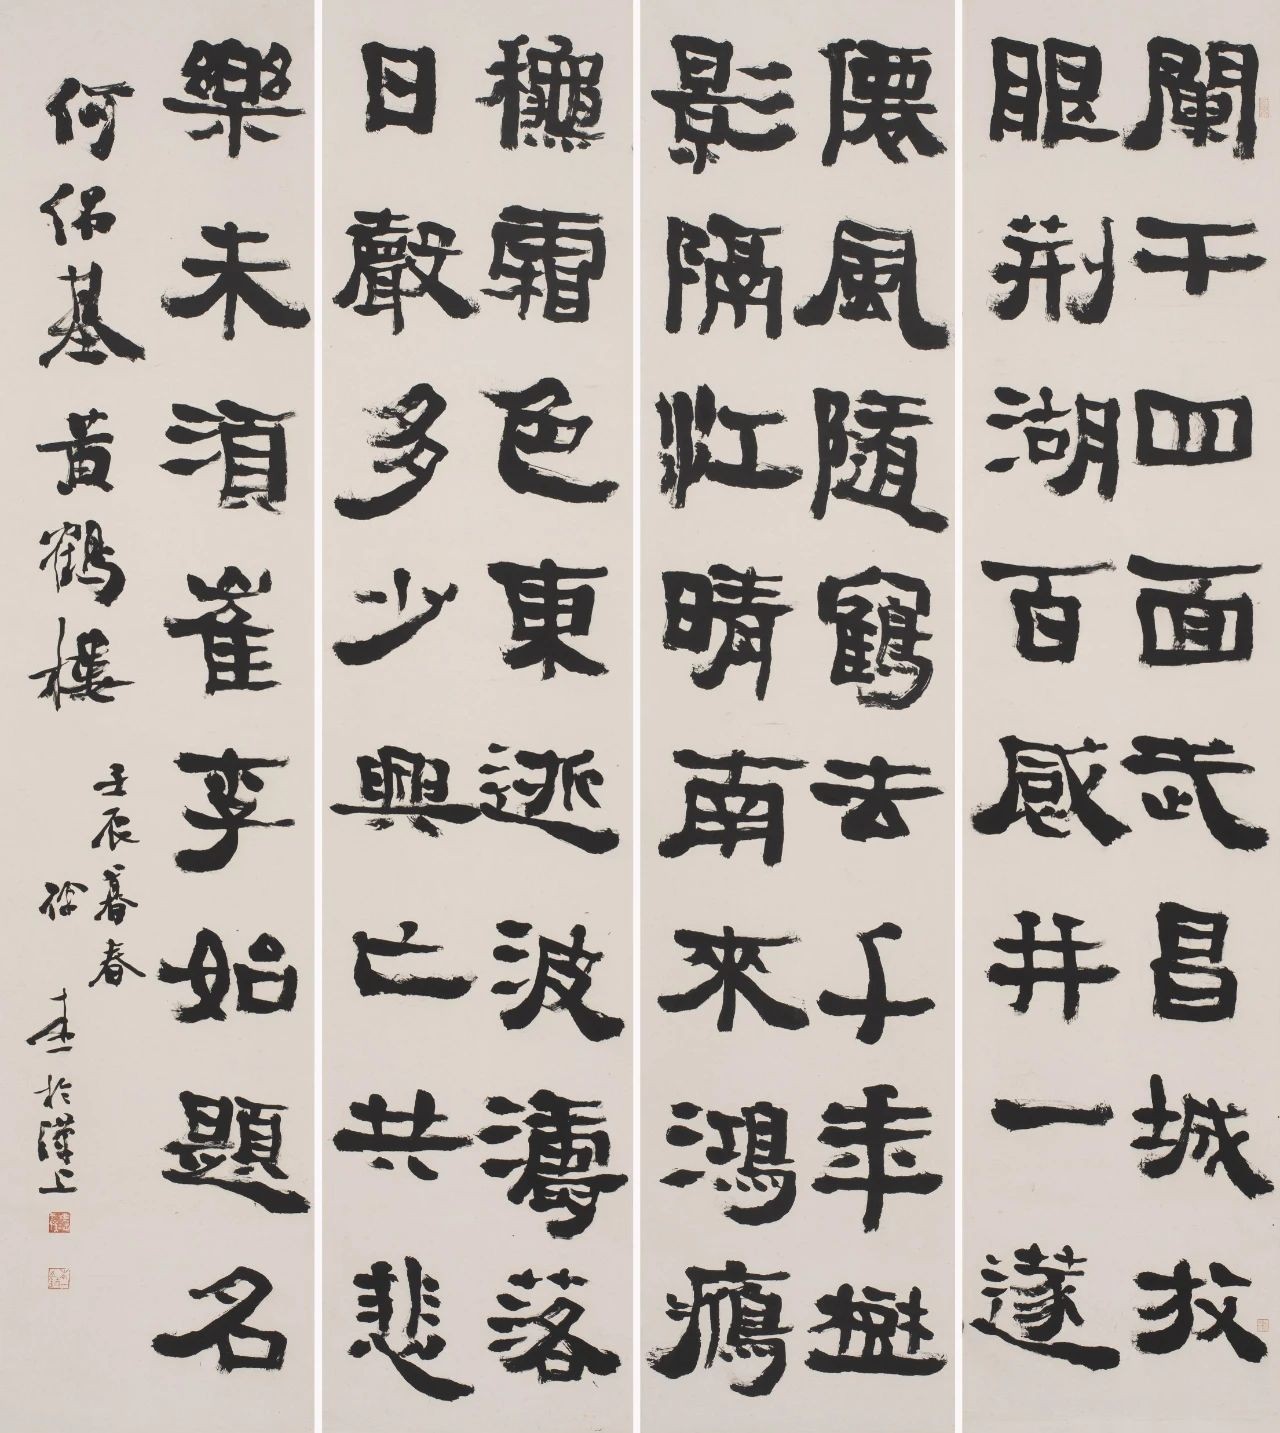 闌干四面武昌城放
眼荆湖百感并一篴
僊風隨鶴去千年
影隔江晴南來鴻鴈
龝霜色東逝波濤落
日聲多少興亡共悲
樂未須崔李始題名
何紹基黃鶴樓
壬辰暮春
於漢上